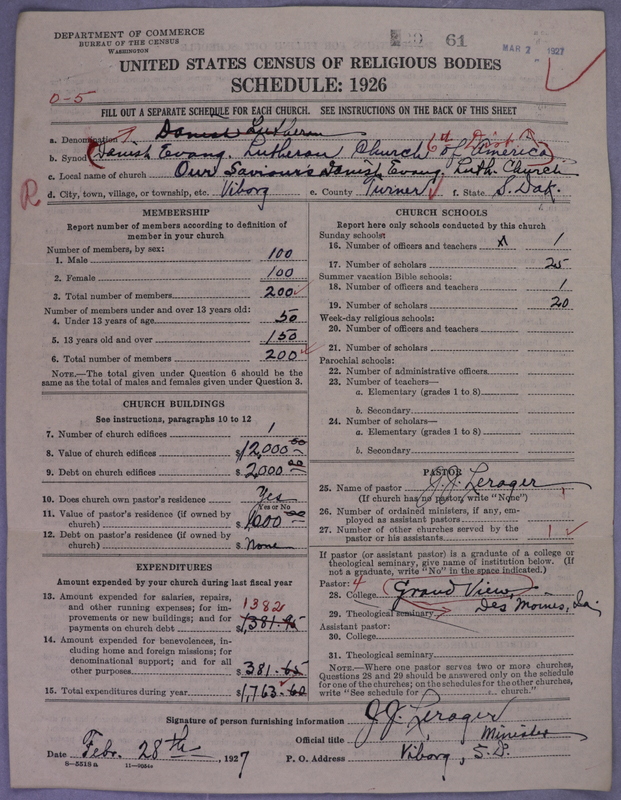 DEPARTMENT OF COMMERCE
BUREAU OF THE CENSUS
WASHINGTON
61
MAR 2 1927
UNITED STATES CENSUS OF RELIGIOUS BODIES
SCHEDULE: 1926
0-5
FILL OUT A SEPARATE SCHEDULE FOR EACH CHURCH. SEE INSTRUCTIONS ON THE BACK OF THIS SHEET
a. Denomination Danish Lutheran
b. Synod (Danish Evang. Lutheran Church of America)
c. Local name of church Our Saviour's Danish Evang. Luth. Church
R
d. City, town, village, or township, etc. Viborg e. County Turner f. State S. Dak.
MEMBERSHIP
Report number of members according to definition of
member in your church
Number of members, by sex:
1. Male 100
2. Female 100
3. Total number of members 200
Number of members under and over 13 years old:
4. Under 13 years of age 50
5. 13 years old and over 150
6. Total number of members 200
NOTE.—The total given under Question 6 should be the
same as the total of males and females given under Question 3.
CHURCH BUILDINGS
See instructions, paragraphs 10 to 12
7. Number of church edifices 1
8. Value of church edifices $12,000.00
9. Debt on church edifices $2,000.00
10. Does church own pastor's residence Yes
Yes or No
11. Value of pastor's residence (if owned by
church) $1,000.00
12. Debt on pastor's residence (if owned by
church) $ None
EXPENDITURES
Amount expended by your church during last fiscal year
13. Amount expended for salaries, repairs,
and other running expenses; for im-
provements or new buildings; and for
payments on church debt 1382 $1,381.95
14. Amount expended for benevolences, in-
cluding home and foreign missions; for
denominational support; and for all
other purposes $381.65
15. Total expenditures during year $1,763.60
CHURCH SCHOOLS
Report here only schools conducted by this church
Sunday schools:
16. Number of officers and teachers 1
17. Number of scholars 25
Summer vacation Bible schools:
18. Number of officers and teachers 1
19. Number of scholars 20
Week-day religious schools:
20. Number of officers and teachers
21. Number of scholars
Parochial schools:
22. Number of administrative officers
23. Number of teachers—
a. Elementary (grades 1 to 8)
b. Secondary
24. Number of scholars—
a. Elementary (grades 1 to 8)
b. Secondary
PASTOR
25. Name of pastor J. J. Lerager
(If church has no pastor, write "None")
26. Number of ordained ministers, if any, em-
ployed as assistant pastors
27. Number of other churches served by the
pastor or his assistants 1
If pastor (or assistant pastor) is a graduate of a college or
theological seminary, give name of institution below. (If
not a graduate, write "No" in the space indicated.)
Pastor: 4
28. College Grand View,
29. Theological seminary Des Moines, Ia.
Assistant pastor:
30. College
31. Theological seminary
NOTE.—Where one pastor serves two or more churches,
Questions 28 and 29 should be answered only on the schedule
for one of the churches; on the schedules for the other churches,
write "See schedule for church."
Signature of person furnishing information J. J. Lerager
Official title Minister
Date Febr. 28th, 1927 P. O. Address Viborg, S. D.
8-5518 a